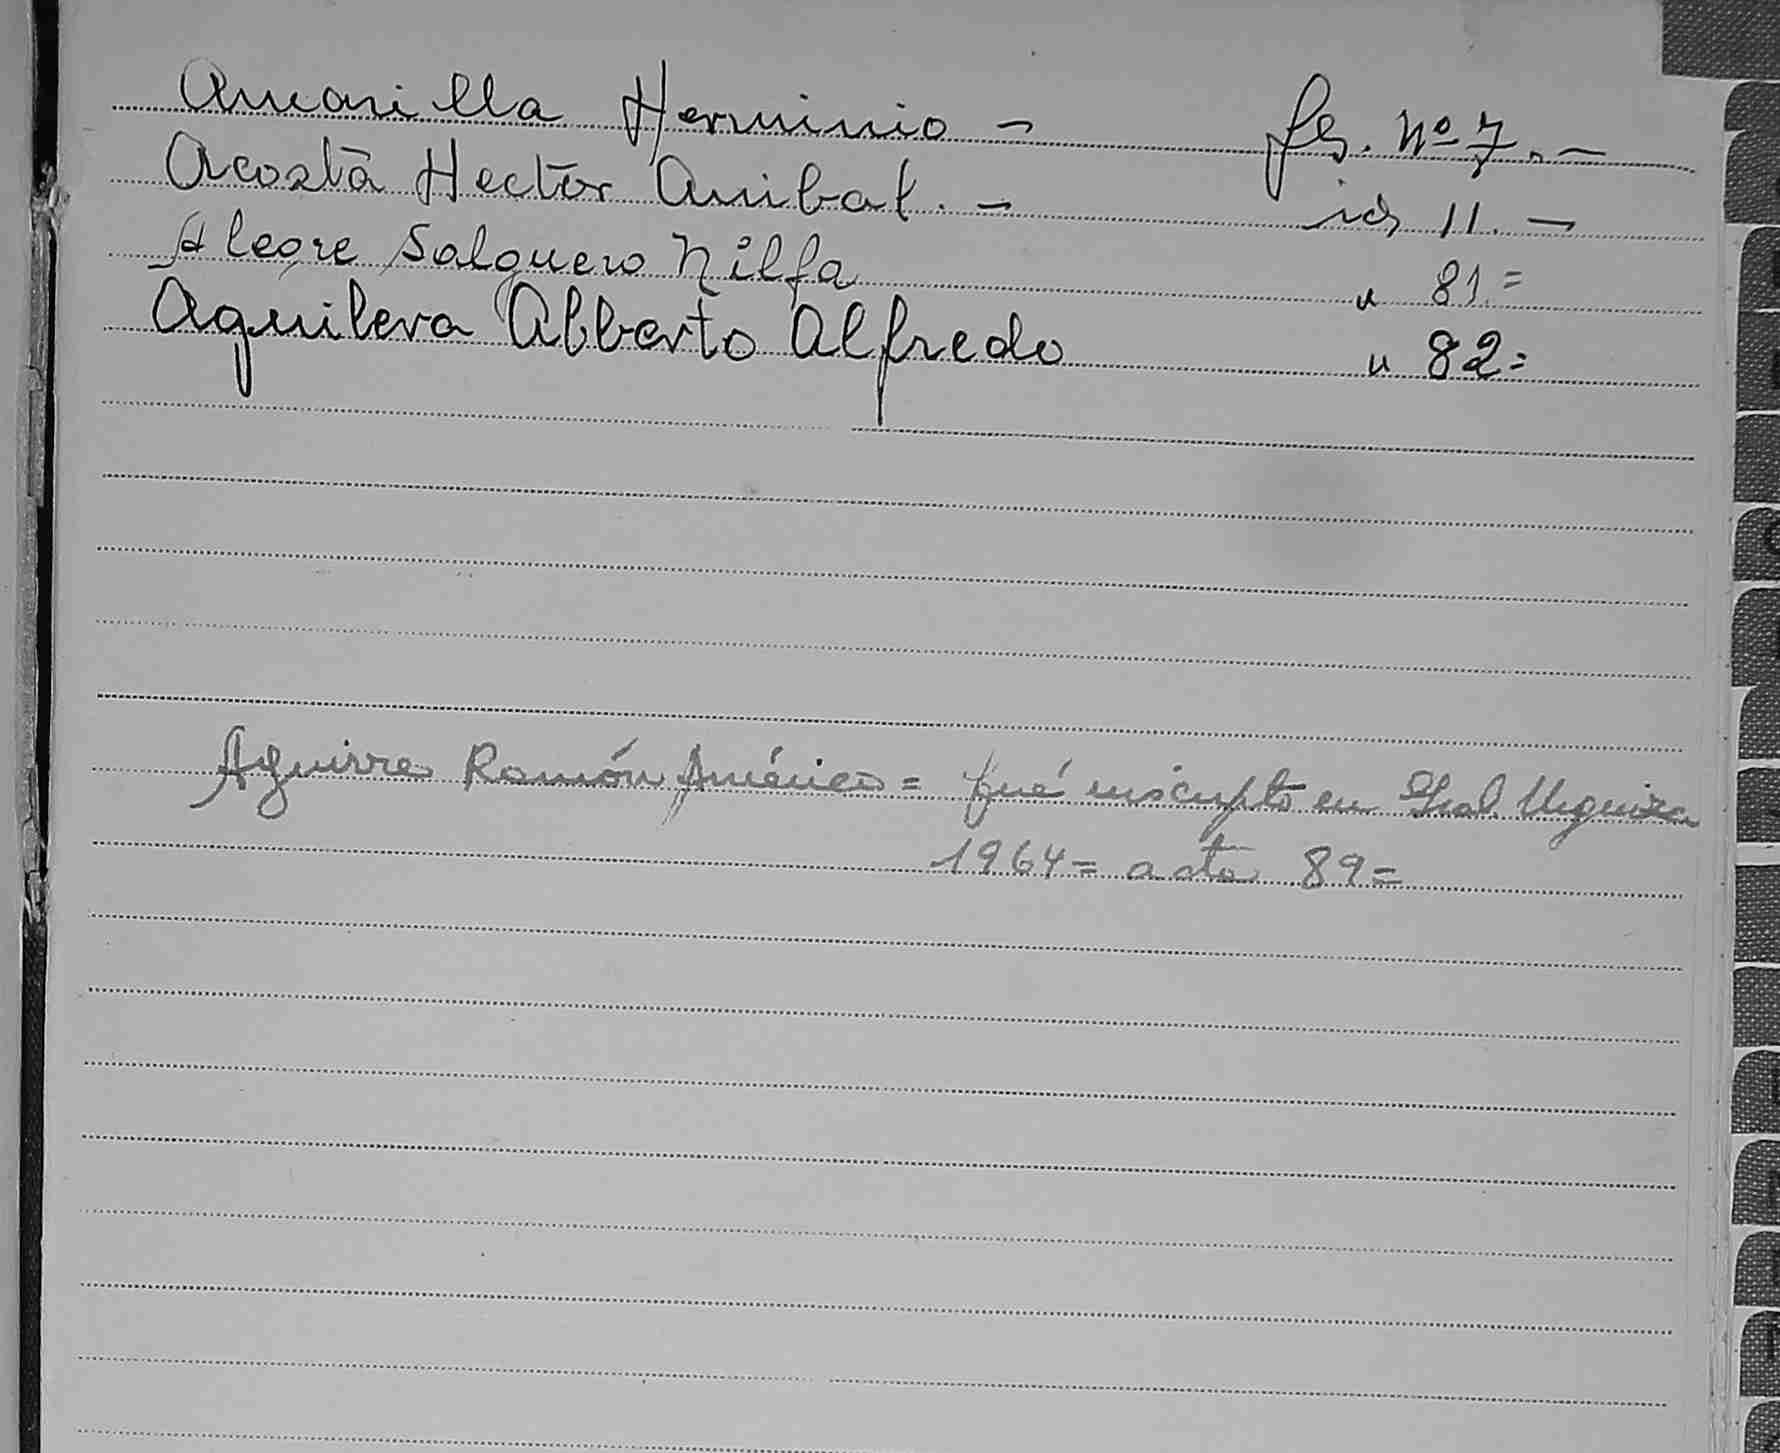 Amarilla Herminio - fs. Nº 7. -
Acosta Hector Anibal. - id 11. -
Alegre Salguero Nilfa " 81. =
Aguilera Alberto Alfredo " 82 =
Aguirre Ramón Américo = fué inscripto en Gral. Urquiza
1964 = acta 89 =